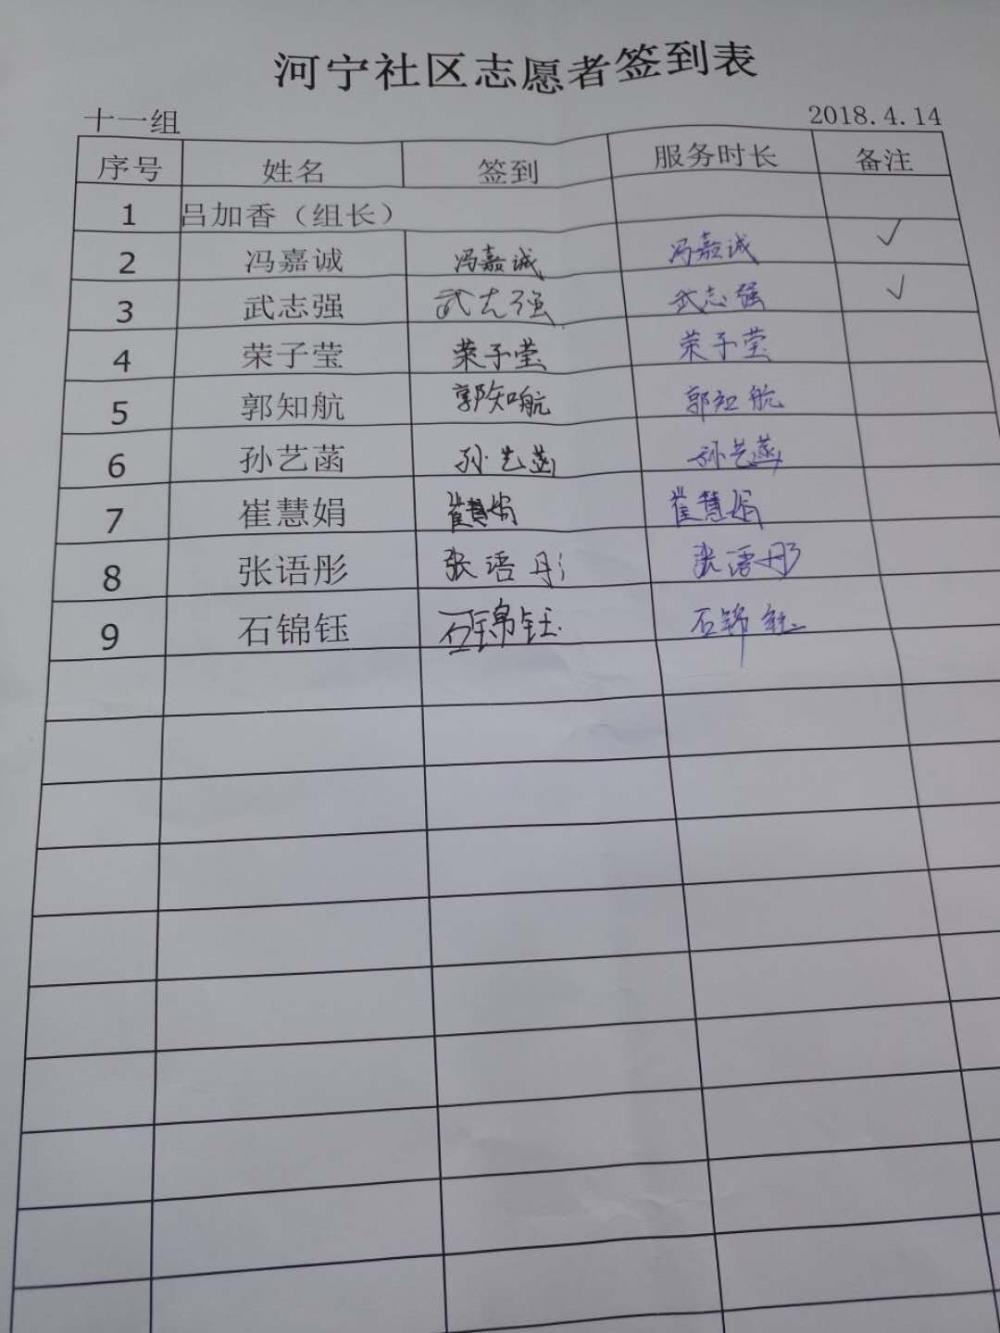 河宁社区志愿者签到表
十一组 2018.4.14
序号 姓名 签到 服务时长 备注
1 吕加香（组长）
2 冯嘉诚 冯嘉诚 冯嘉诚 ✓
3 武志强 武志强 武志强 ✓
4 荣子莹 荣子莹 荣子莹
5 郭知航 郭知航 郭知航
6 孙艺菡 孙艺菡 孙艺菡
7 崔慧娟 崔慧娟 崔慧娟
8 张语彤 张语彤 张语彤
9 石锦钰 石锦钰 石锦钰